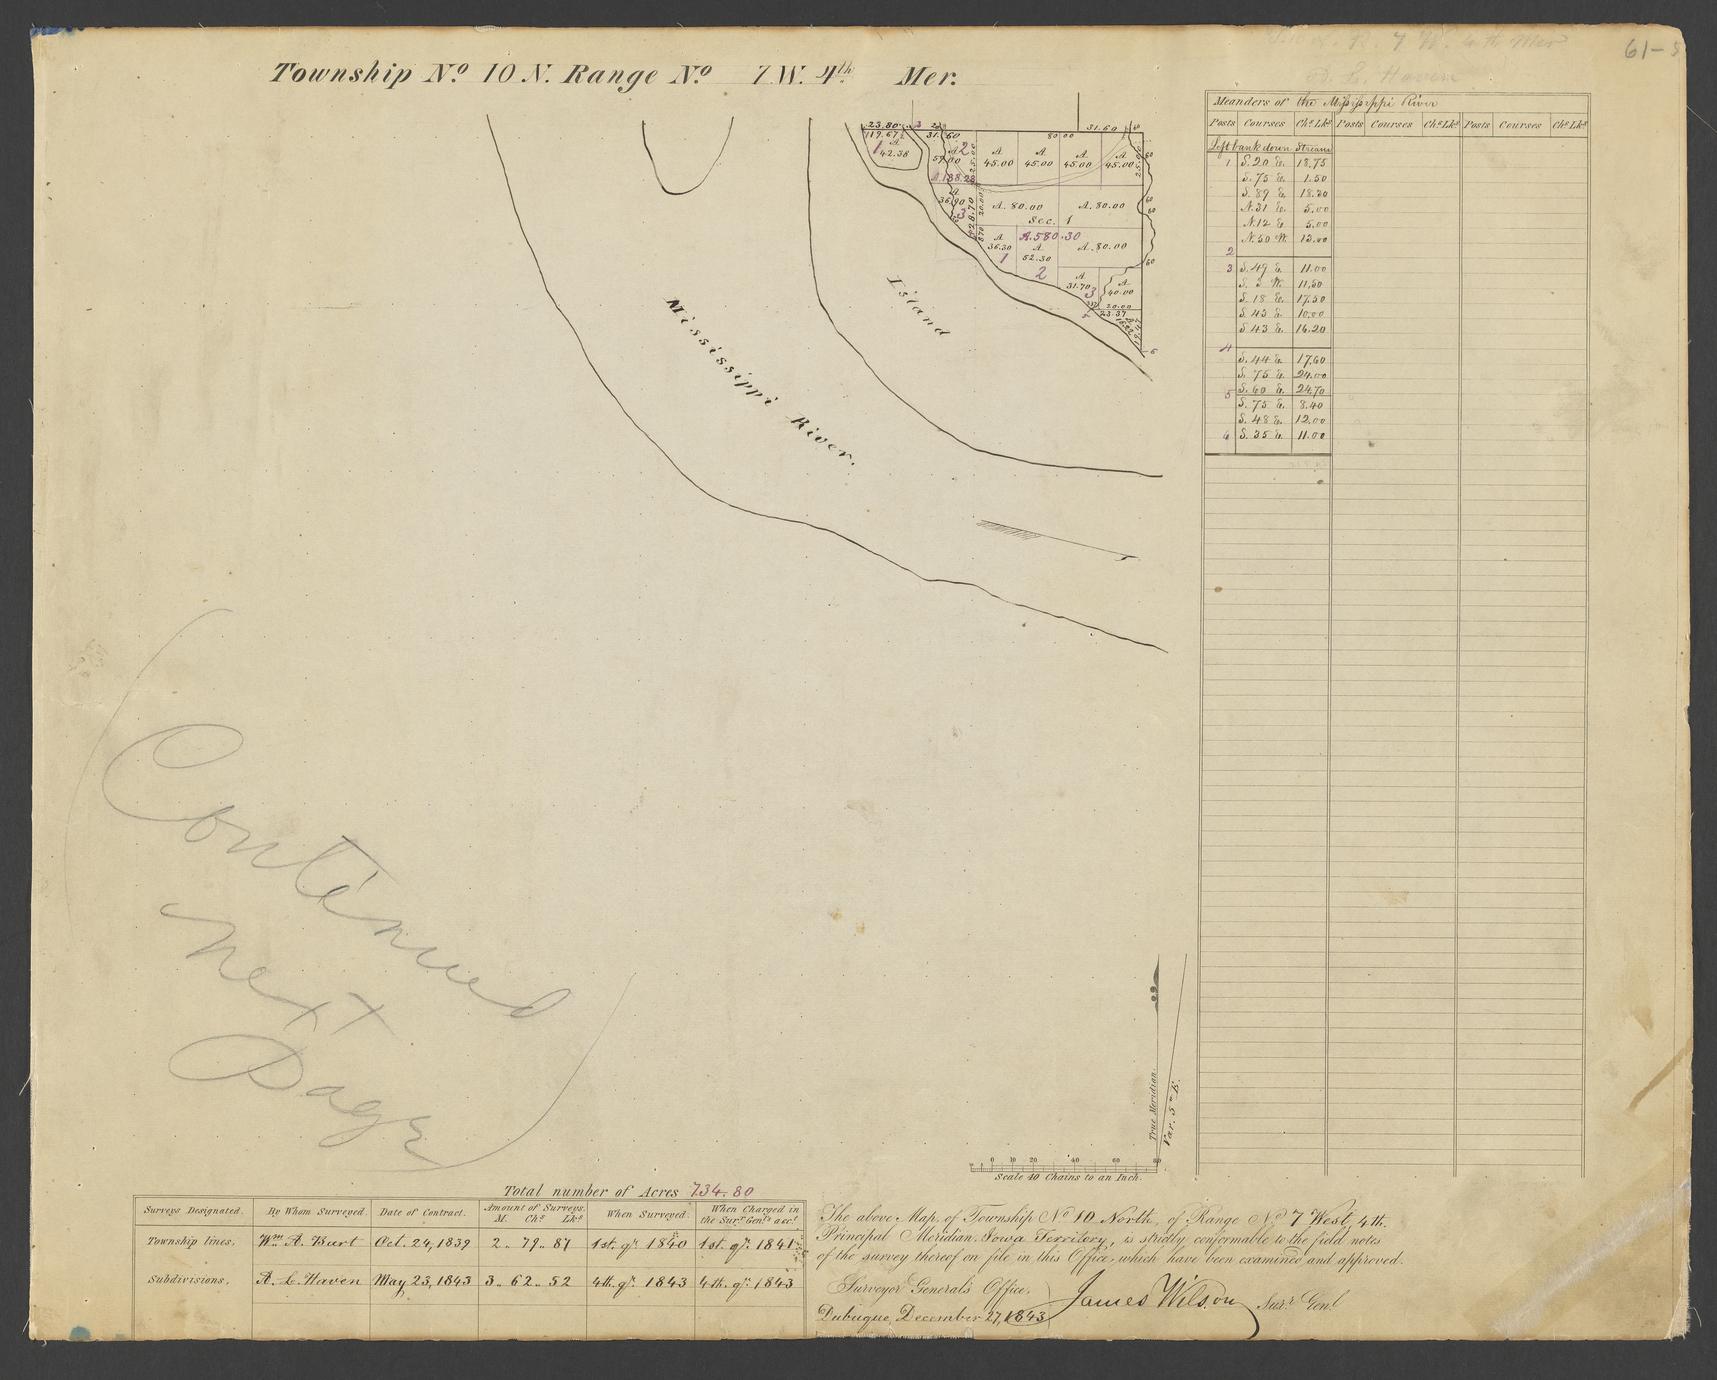 61-
Township No 10 N. Range No 7 W. 4th Mer.
Meanders of the Mississippi River
Posts Courses Chs Lks Posts Courses Chs Lks Posts Courses Chs Lks
Left bank down Stream
1 S. 20 E. 18.75
S. 75 E. 1.50
S. 89 E. 18.30
N. 31 E. 5.00
N. 12 E. 5.00
N. 50 W. 13.00
2
3 S. 49 E. 11.00
11.50
S. 18 E. 17.50
S. 43 E. 10.00
S 43 E. 16.20
4
S. 44 E. 17.60
S. 75 E. 24.00
S. 60 E. 24.70
5
S. 75 E. 8.40
S. 48 E. 12.00
6 S. 35 E. 11.00
23.80 3 31.60
119.67 31.60 80 00
1 A 42.38
A 2 57.00 25.00
A 45.00 A 45.00 A 45.00 A 45.00
A. 138.28
A 36.90 3 28.70 20.00
A. 80.00 A. 80.00
Sec. 1
A. 580.30
A 36.30 A 52.30 A. 80.00
1 2
A 31.70 3 A 40.00
20.00
23.37
Island
Mississippi River.
Continued
next
Page
True Meridian.
Var. 5° E.
0 10 20 40 60 80
Scale 40 Chains to an Inch.
Total number of Acres 734.80
Surveys Designated. By Whom Surveyed. Date of Contract. Amount of Surveys. M. Chs Lks When Surveyed. When Charged in the Surr. Genl's acct.
Township lines. Wm. A. Burt Oct. 24, 1839 2.. 79.. 87 1st. qr. 1840 1st. qr. 1841
Subdivisions. A. C. Haven May 23, 1843 3.. 62.. 52 4th. qr. 1843 4th. qr. 1843
The above Map, of Township No 10 North, of Range No 7 West, 4th.
Principal Meridian. Iowa Territory, is strictly conformable to the field notes
of the survey thereof on file in this Office, which have been examined and approved.
Surveyor General's Office,
Dubuque, December 27, 1843
James Wilson Surr. Genl